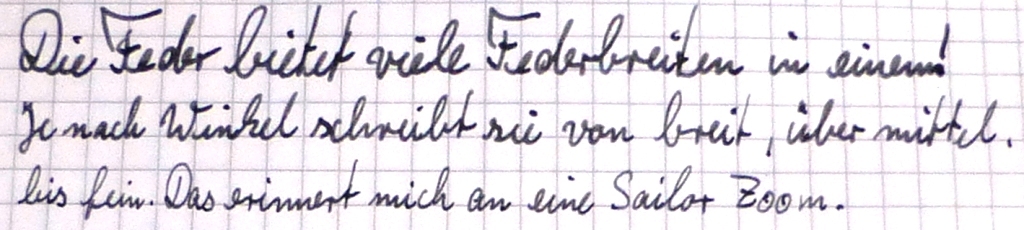 Die Feder bietet viele Federbreiten in einem!
Je nach Winkel schreibt sie von breit, über mittel.
bis fein. Das erinnert mich an eine Sailor Zoom.